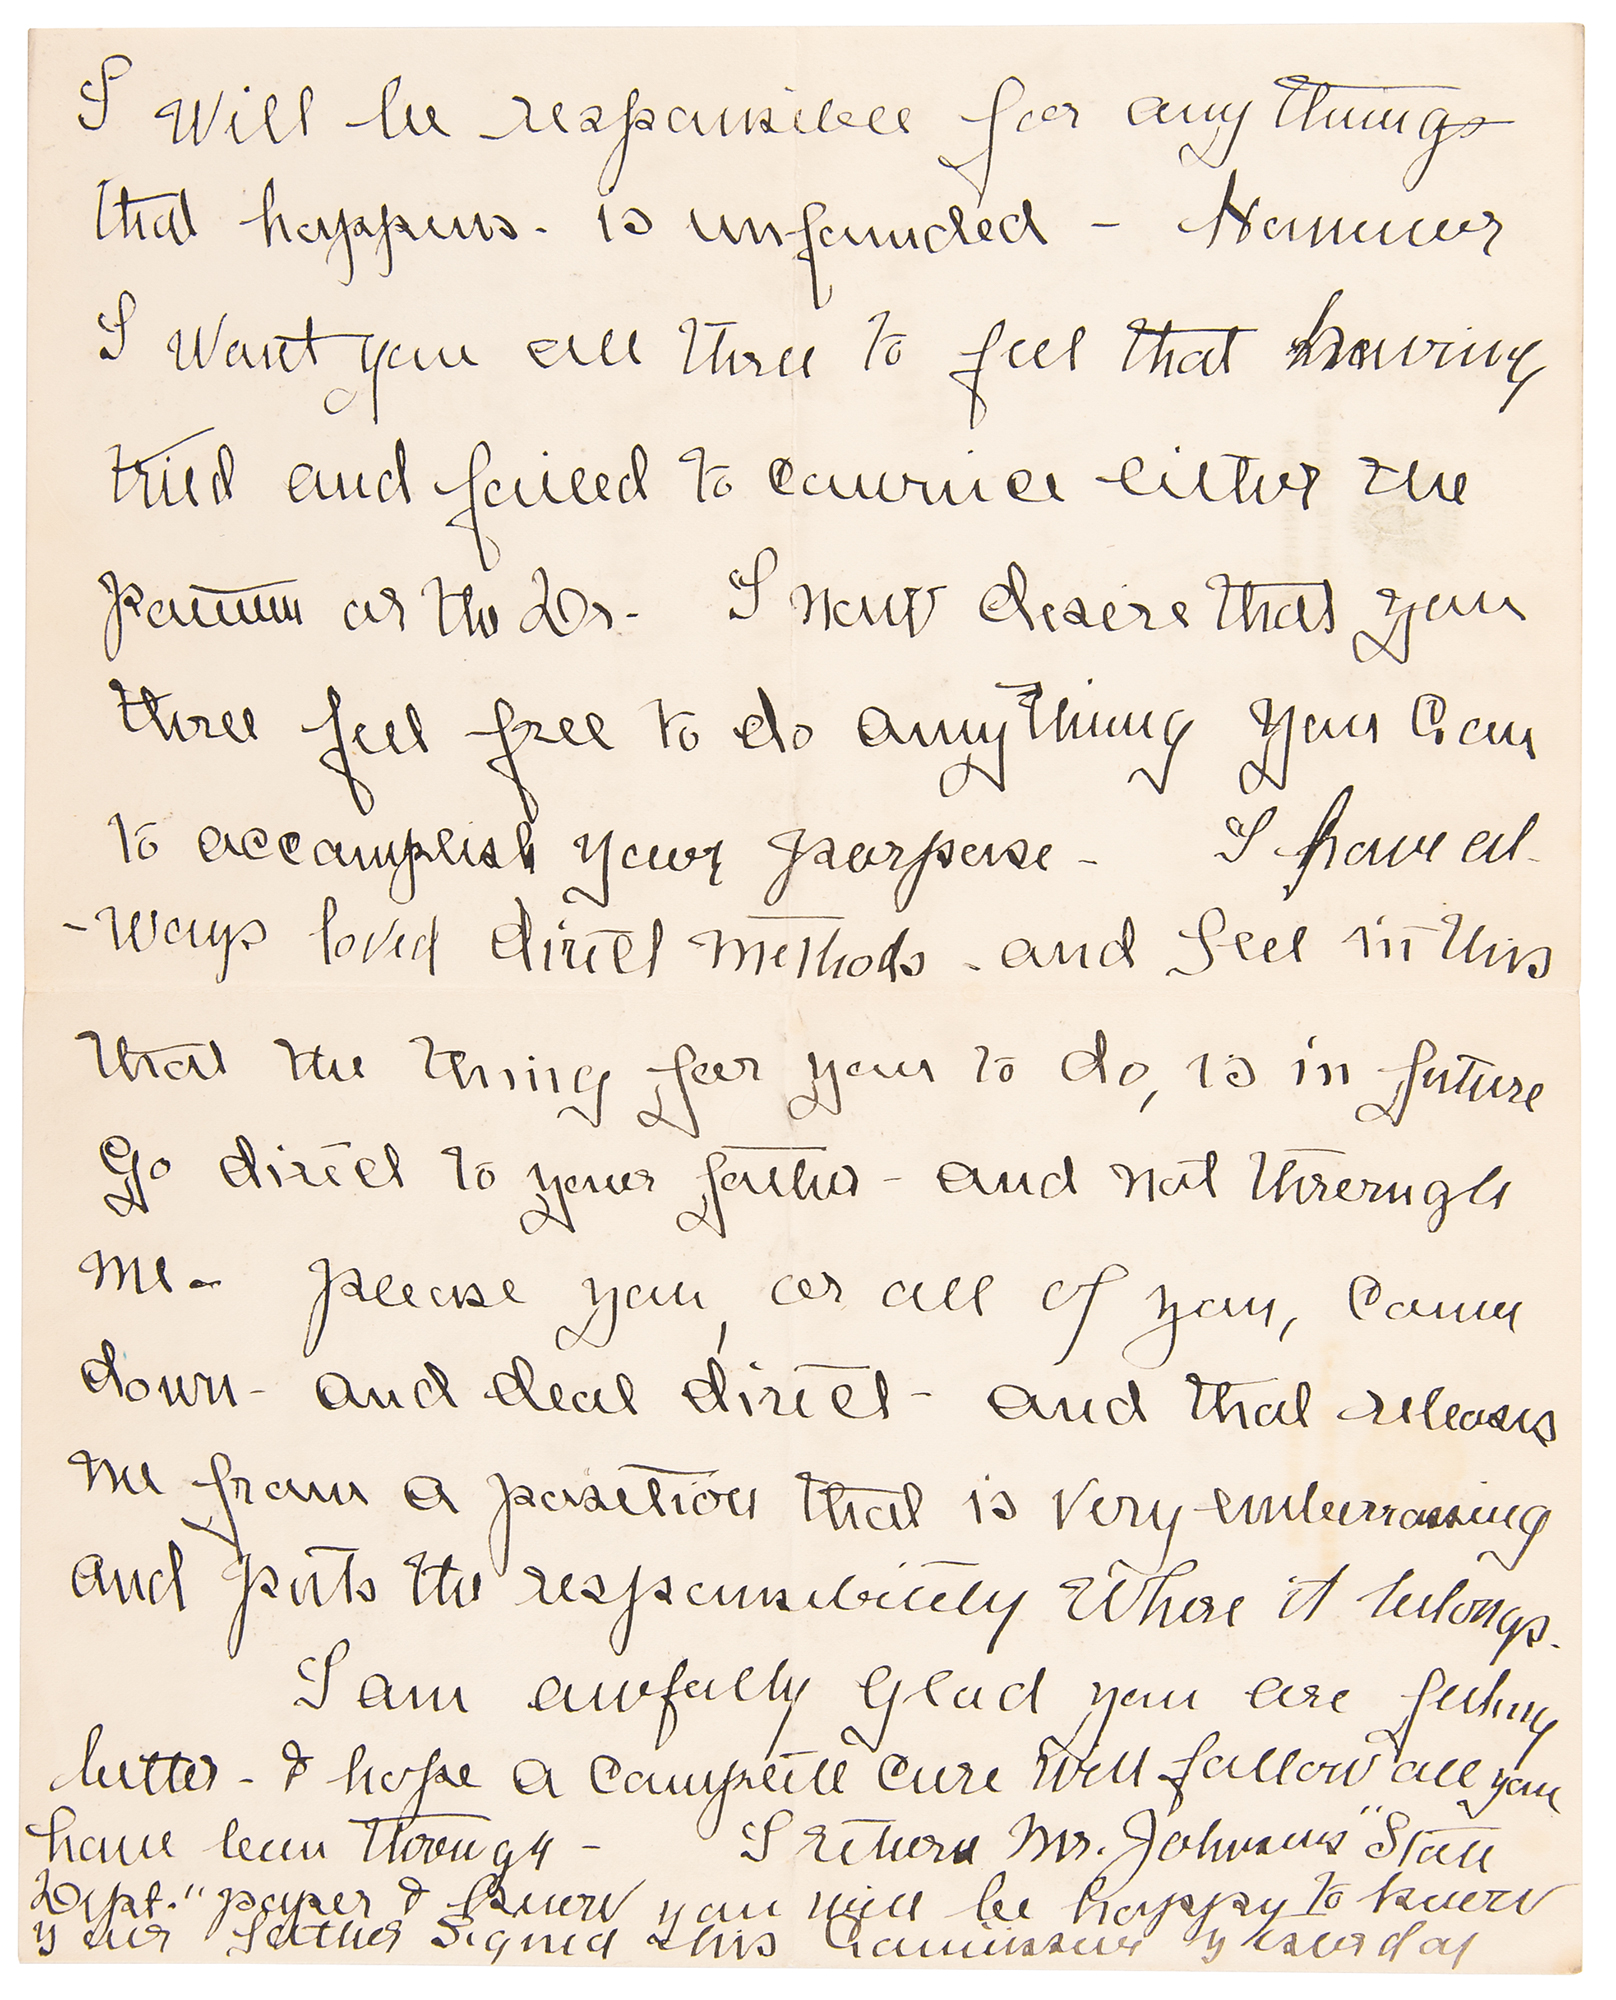 I will be responsible for anythings
that happens - is unfounded - However
I want you all three to feel that having
tried and failed to convince either the
patient or the Dr - I now desire that you
three feel free to do anything you can
to accomplish your porpose - I have al-
-ways loved direct methods - and feel in this
that the thing for you to do, is in future
Go direct to your father - and not through
me - please you, or all of you, come
down - and deal direct - and that releases
me from a position that is very embarrassing
and puts the responsibility where it belongs.
I am awfully glad you are feeling
better - & hope a complete cure will follow all you
have been through - I return Mr. Johnsons "State
Dept." paper & know you will be happy to know
your father signed his Commission yesterday